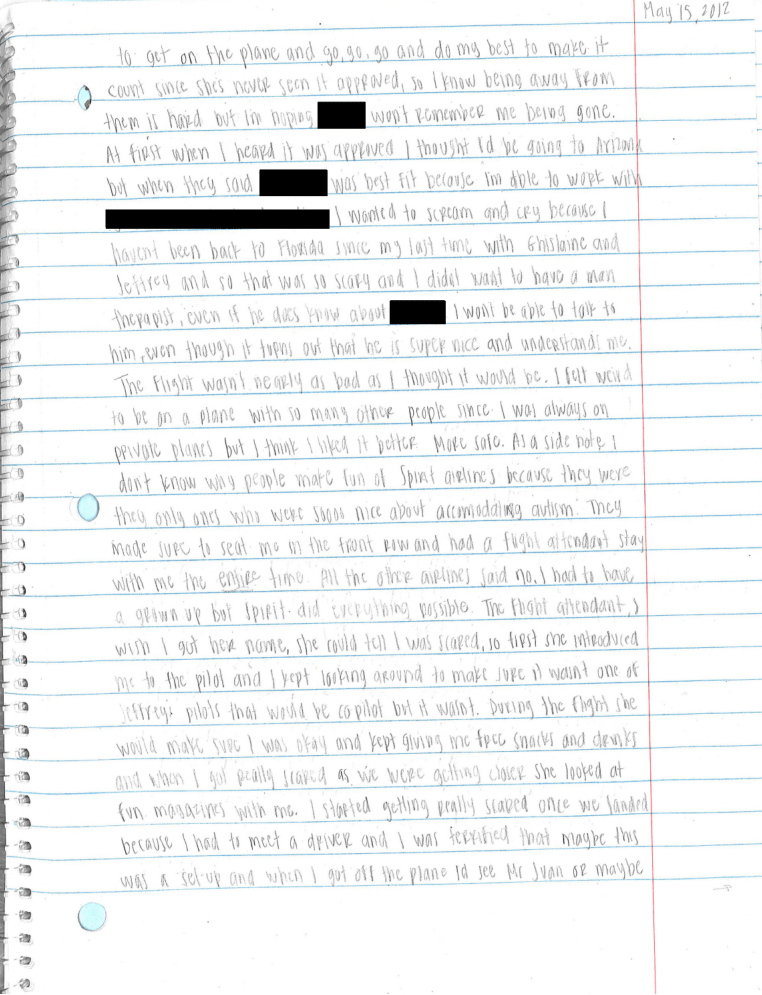 May 15, 2012
to get on the plane and go, go, go and do my best to make it
count since she's never seen it approved, so I know being away from
them is hard but I'm hoping won't remember me being gone.
At first when I heard it was approved I thought I'd be going to Arizona
but when they said was best fit because i'm able to work with
I wanted to scream and cry because I
havent been back to Florida since my last time with Ghislaine and
Jeffrey and so that was so scary and I didnt want to have a man
therapist, even if he does know about I wont be able to talk to
him, even though it turns out that he is super nice and understands me.
The flight wasn't nearly as bad as I thought it would be. I felt weird
to be on a plane with so many other people since I was always on
private planes but I think I liked it better. More safe. As a side note I
don't know why people make fun of Spirit airlines because they were
they only ones who were soooo nice about accomodating autism. They
made sure to seat me in the front row and had a flight attendant stay
with me the entire time. All the other airlines said no, I had to have
a grown up but Spirit did everything possible. The flight attendant, I
wish I got her name, she could tell I was scared, so first she introduced
me to the pilot and I kept looking around to make sure it wasnt one of
Jeffreys pilots that would be copilot but it wasnt. During the flight she
would make sure I was okay and kept giving me free snacks and drinks
and when I got really scared as we were getting closer she looked at
fun magazines with me. I started getting really scared once we landed
because I had to meet a driver and I was terrified that maybe this
was a set-up and when I got off the plane Id see Mr Juan or maybe